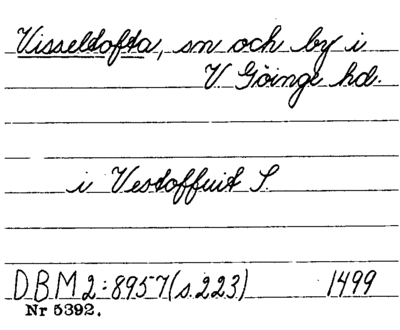 Visseltofta, sn och by i
V Göinge hd.
i Vestoffuit S.
DBM 2:8957 (s. 223) 1499
Nr 5392.